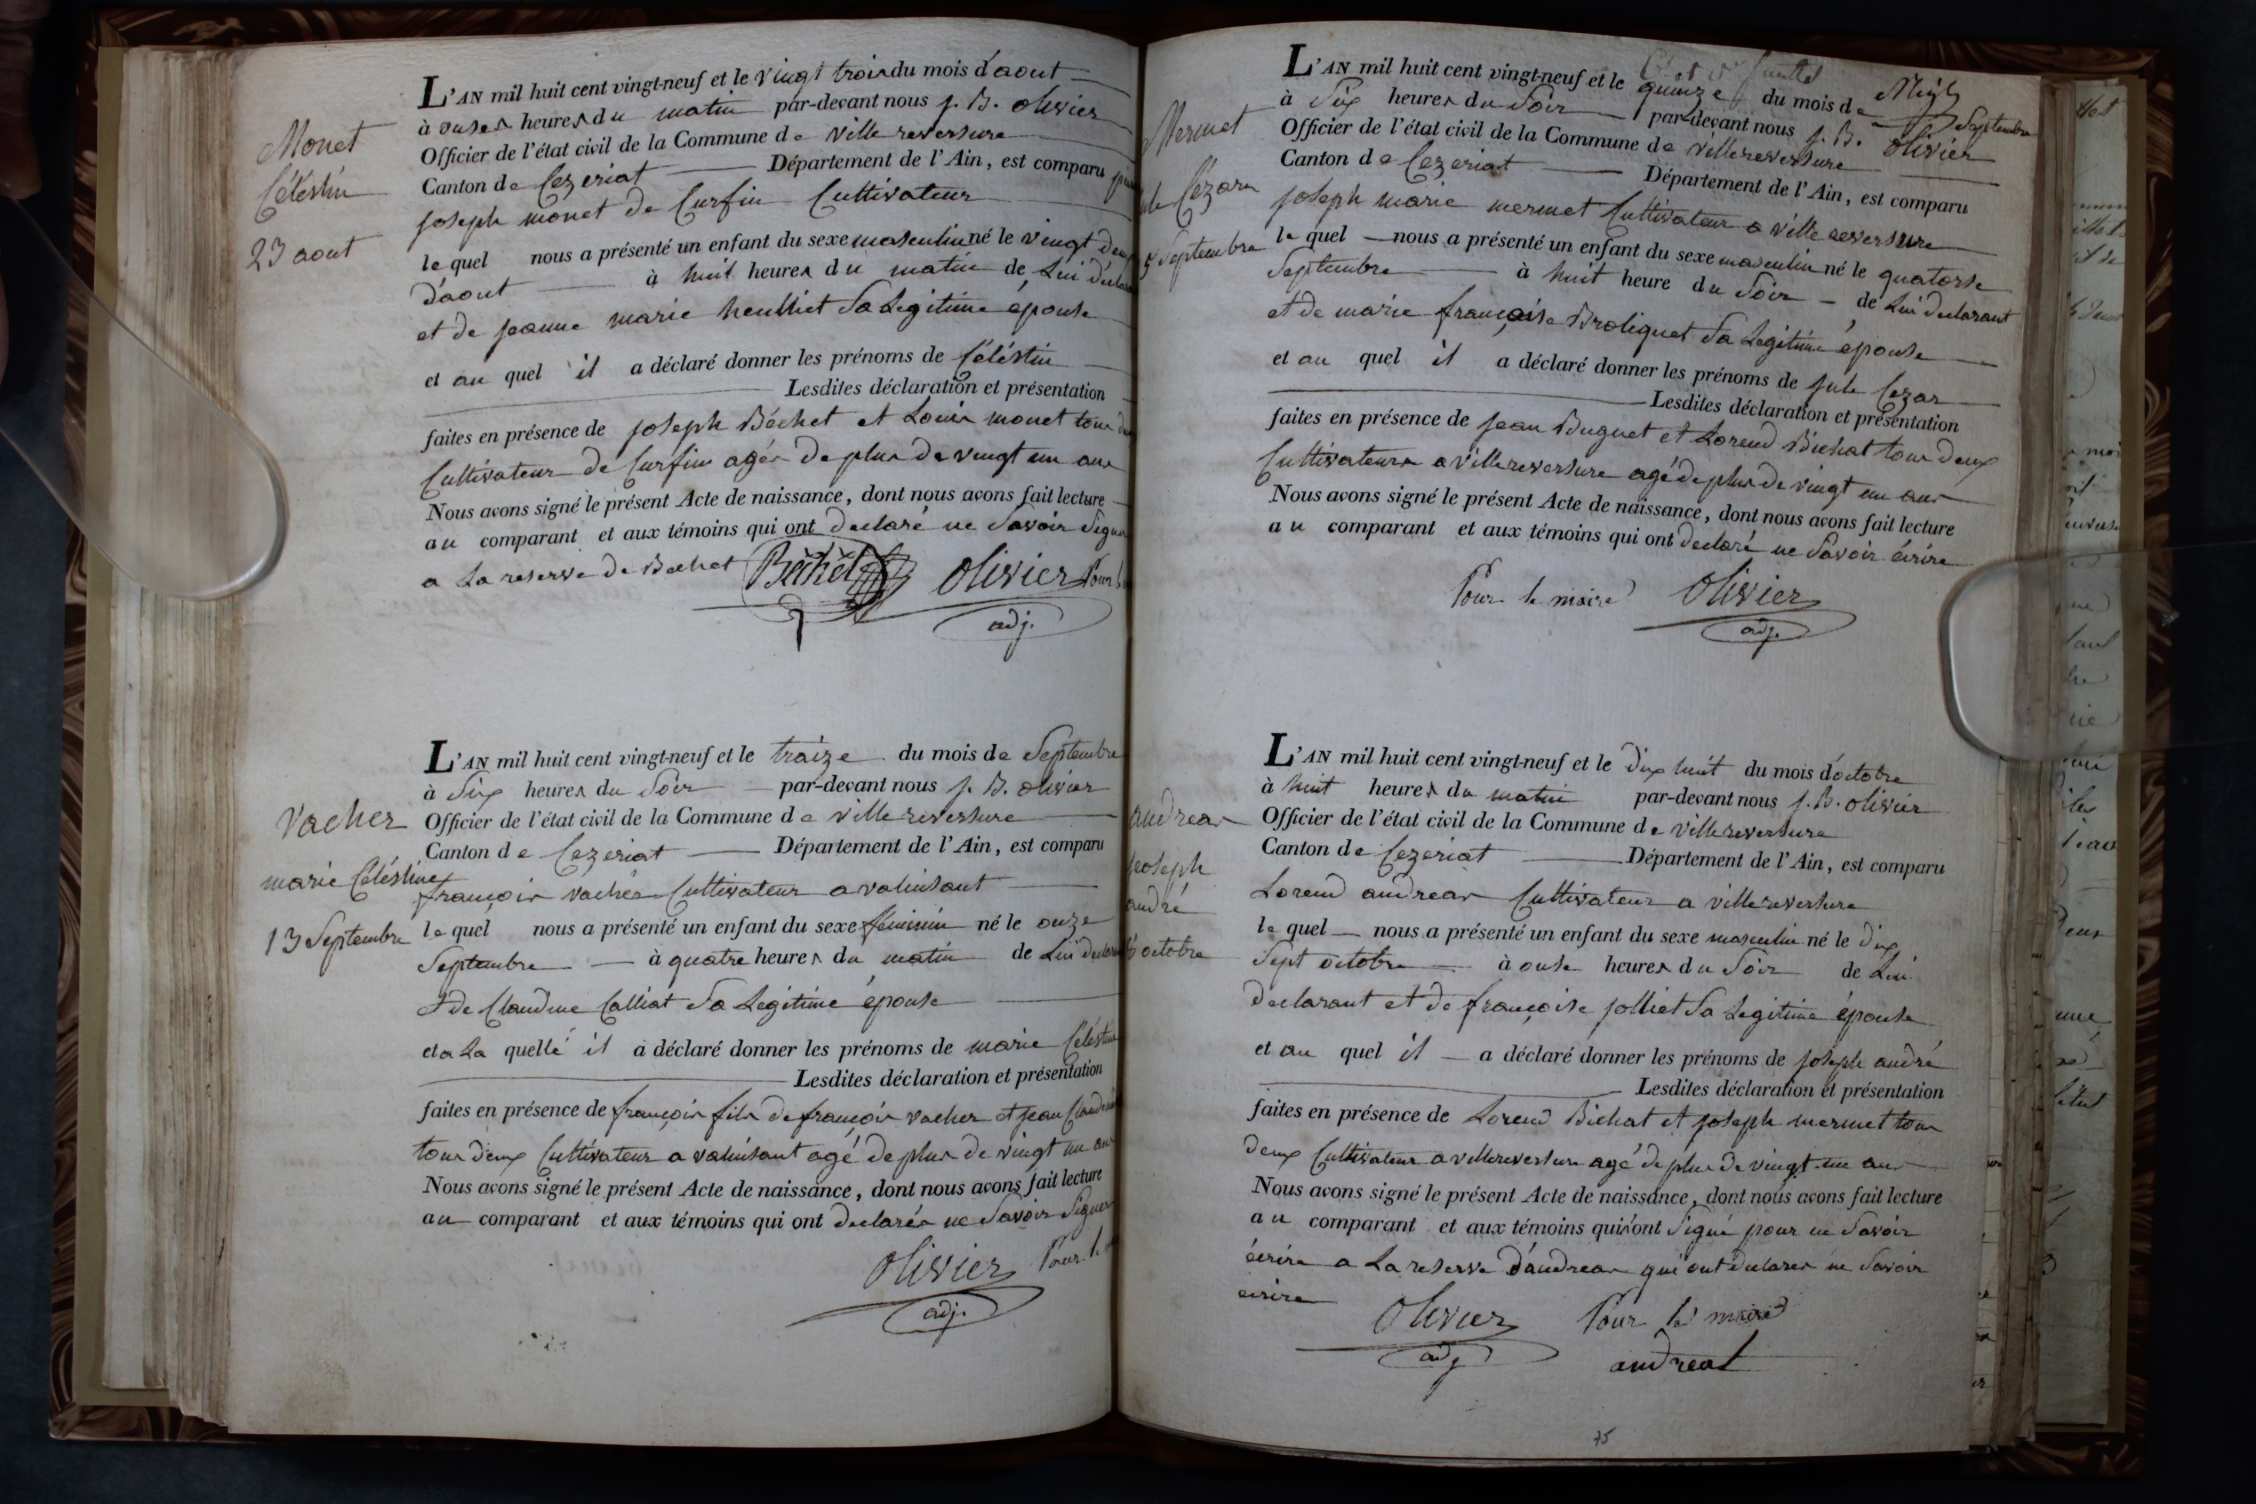 Monet
Céléstin
23 aout
L'AN mil huit cent vingt-neuf et le vingt trois du mois d'aout
à onses heures du matin par-devant nous j. B. olivier
Officier de l'état civil de la Commune de villereversure
Canton de Cezeriat Département de l'Ain, est comparu
joseph monet de Curfin Cultivateur
le quel nous a présenté un enfant du sexe masculin né le vingt deux
d'aout à huit heures du matin de Lui déclara
et de jeanne marie heulliet Sa Legitime épouse
et au quel il a déclaré donner les prénoms de Céléstin
Lesdites déclaration et présentation
faites en présence de joseph Béchet et Louis monet tous d
Cultivateur de Curfin agés de plus de vingt un ans
Nous avons signé le présent Acte de naissance, dont nous avons fait lecture
au comparant et aux témoins qui ont declaré ne Savoir Signer
a La reserve de Bechet Béchet Olivier Pour
adj.
Vacher
marie Céléstine
13 Septembre
L'AN mil huit cent vingt-neuf et le traize du mois de Septembre
à Six heures du Soir par-devant nous j. B. olivier
Officier de l'état civil de la Commune de villereversure
Canton de Cezeriat Département de l'Ain, est comparu
françois vacher Cultivateur a valuisant
le quel nous a présenté un enfant du sexe féminin né le onze
Septembre à quatre heures du matin de Lui declara
et de Claudine Calliat Sa Legitime épouse
et a La quellé il a déclaré donner les prénoms de marie Céléstine
Lesdites déclaration et présentation
faites en présence de françois fils de françois vacher et jean
tous deux Cultivateur a valuisant agé de plus de vingt un ans
Nous avons signé le présent Acte de naissance, dont nous avons fait lecture
au comparant et aux témoins qui ont declarés ne Savoir Signer
Olivier Pour le
adj.
Mermet
jule Cézar
15 Septembre
L'AN mil huit cent vingt-neuf et le quinze du mois de Septembre
à Six heures du Soir par-devant nous j. B. olivier
Officier de l'état civil de la Commune de villereversure
Canton de Cezeriat Département de l'Ain, est comparu
joseph marie mermet Cultivateur a villereversure
le quel nous a présenté un enfant du sexe masculin né le quatorse
Septembre à huit heure du Soir de Lui declarant
et de marie françoise Broliquet Sa Legitime épouse
et au quel il a déclaré donner les prénoms de jule Cezar
Lesdites déclaration et présentation
faites en présence de jean Buguet et Lorend Bichat tous deux
Cultivateurs a villereversure agé de plus de vingt un ans
Nous avons signé le présent Acte de naissance, dont nous avons fait lecture
au comparant et aux témoins qui ont declaré ne Savoir écrire
Pour le maire Olivier
adj.
andreas
joseph
andré
octobre
L'AN mil huit cent vingt-neuf et le dix huit du mois d'octobre
à huit heures du matin par-devant nous j. B. olivier
Officier de l'état civil de la Commune de villereversure
Canton de Cezeriat Département de l'Ain, est comparu
Lorend andreas Cultivateur a villereversure
le quel nous a présenté un enfant du sexe masculin né le dix
Sept octobre à onse heures du Soir de Lui
declarant et de françoise jolliet Sa Legitime épouse
et au quel il a déclaré donner les prénoms de joseph andré
Lesdites déclaration et présentation
faites en présence de Lorend Bichat et joseph mermet tous
deux Cultivateur a villereversure agé de plus de vingt un ans
Nous avons signé le présent Acte de naissance, dont nous avons fait lecture
au comparant et aux témoins qui n'ont Signé pour ne Savoir
écrire a La reserve d'andreas qui ont declarer ne Savoir
écrire
Olivier Pour le maire
adj
andreas
75